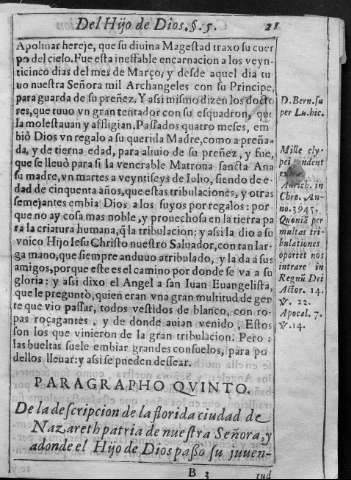 Del Hijo de Dios. §. 5. 21
Apolinar hereje, que su diuina Magestad traxo su cuer
po del cielo. Fue esta inefable encarnacion a los veyn-
ticinco dias del mes de Março, y desde aquel dia tu
uo nuestra Señora mil Archangeles con su Principe,
para guarda de su preñez. Y assi mismo dizen los docto
res, que tuuo vn gran tentador con su esquadron, que
la molestauan y affligian. Passados quatro meses, em
bió Dios vn regalo a su querida Madre, como a preña-
da, y de tierna edad, para aliuio de su preñez, y fue,
que se lleuò para si la venerable Matrona sancta Ana
su madre, vn martes a veyntiseys de Iulio, siendo de e-
dad de cinquenta años, que estas tribulaciones, y otras
semejantes embia Dios a los suyos por regalos: por-
que no ay cosa mas noble, y prouechosa en la tierra pa
ra la criatura humana, q̃ la tribulacion; y assi la dio a su
vnico Hijo Iesu Christo nuestro Saluador, con tan lar-
ga mano, que siempre anduuo atribulado, y la da à sus
amigos, porque este es el camino por donde se va a su
gloria: y assi dixo el Angel a san Iuan Euangelista,
que le preguntò, quien eran vna gran multitud de gen
te que vio passar, todos vestidos de blanco, con ro-
pas roçagantes, y de donde auian venido, Estos
son los que vinieron de la gran tribulacion. Pero
las bueltas suele embiar grandes consuelos, para po
dellos lleuar: y assi se pueden dessear.
D. Bern. su
per Lu. hic.
Mille cly-
pei pendent
ex
Auric. in
Chro. An-
no. 3945.
Quoniã per
multas tri-
bulationes
oportet nos
intrare in
Regnũ Dei
Actor. 14.
℣. 22.
Apocal. 7.
℣. 14.
PARAGRAPHO QVINTO.
De la descripcion de la florida ciudad de
Nazareth patria de nuestra Señora, y
adonde el Hijo de Dios passo su juuen-
B 3 tud